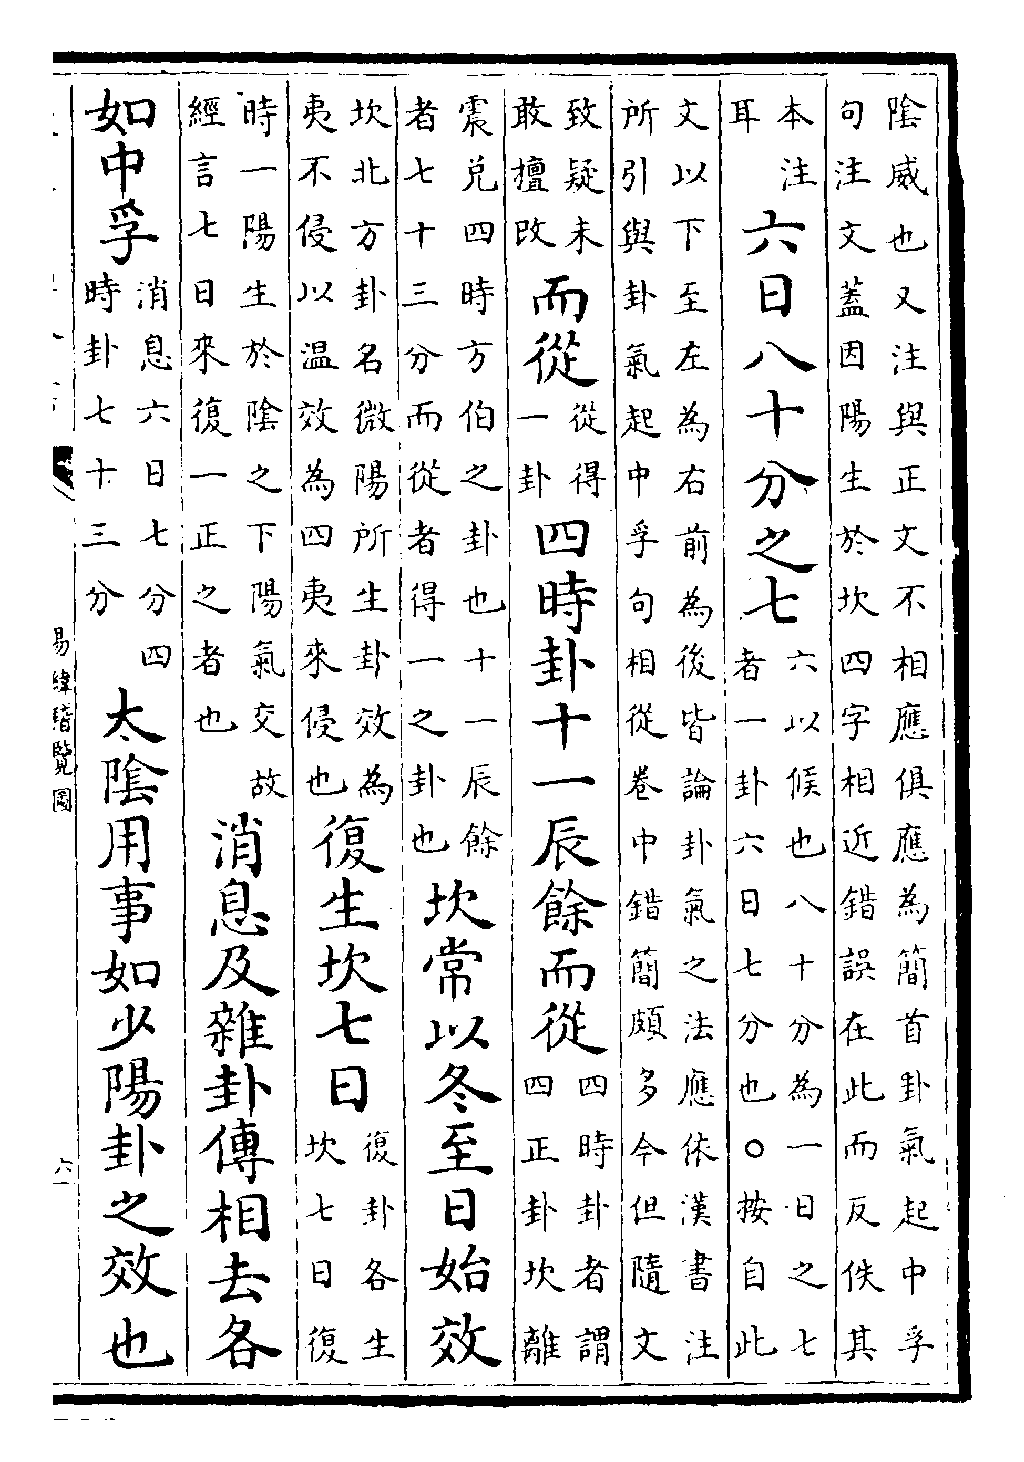 陰威也又注與正文不相應俱應為簡首卦氣起中孚
句注文蓋因陽生於坎四字相近錯誤在此而反佚其
本注耳六日八十分之七六以候也八十分為一日之七者一卦六日七分也○按自此
文以下至左為右前為後皆論卦氣之法應依漢書注
所引與卦氣起中孚句相從卷中錯簡頗多今但隨文
致疑未敢擅改而從從得一卦四時卦十一辰餘而從四時卦者謂四正卦坎離
震兌四時方伯之卦也十一辰餘者七十三分而從者得一之卦也坎常以冬至日始效
坎北方卦名微陽所生卦效為夷不侵以温效為四夷來侵也復生坎七日復卦各生坎七日復
時一陽生於陰之下陽氣交故經言七日來復一正之者也消息及雜卦傳相去各
如中孚消息六日七分四時卦七十三分太陰用事如少陽卦之效也
易緯稽覽圖